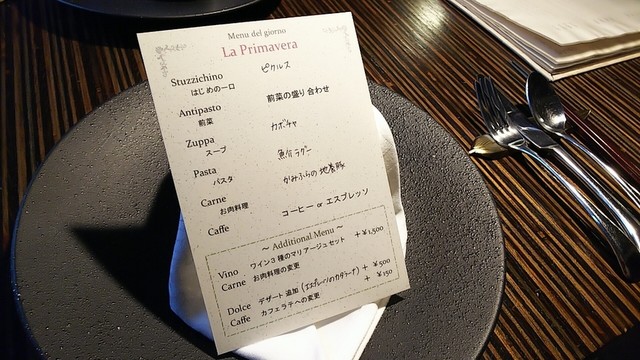 Menu del giorno
La Primavera
Stuzzichino ピクルス
はじめの一口
Antipasto 前菜の盛り合わせ
前菜
Zuppa カボチャ
スープ
Pasta 魚介ラグー
パスタ
Carne かみふらの地養豚
お肉料理
Caffe コーヒー or エスプレッソ
～ Additional Menu ～
Vino ワイン3種のマリアージュセット +¥1,500
Carne お肉料理の変更
Dolce デザート追加 + ¥500
Caffe カフェラテへの変更 + ¥150